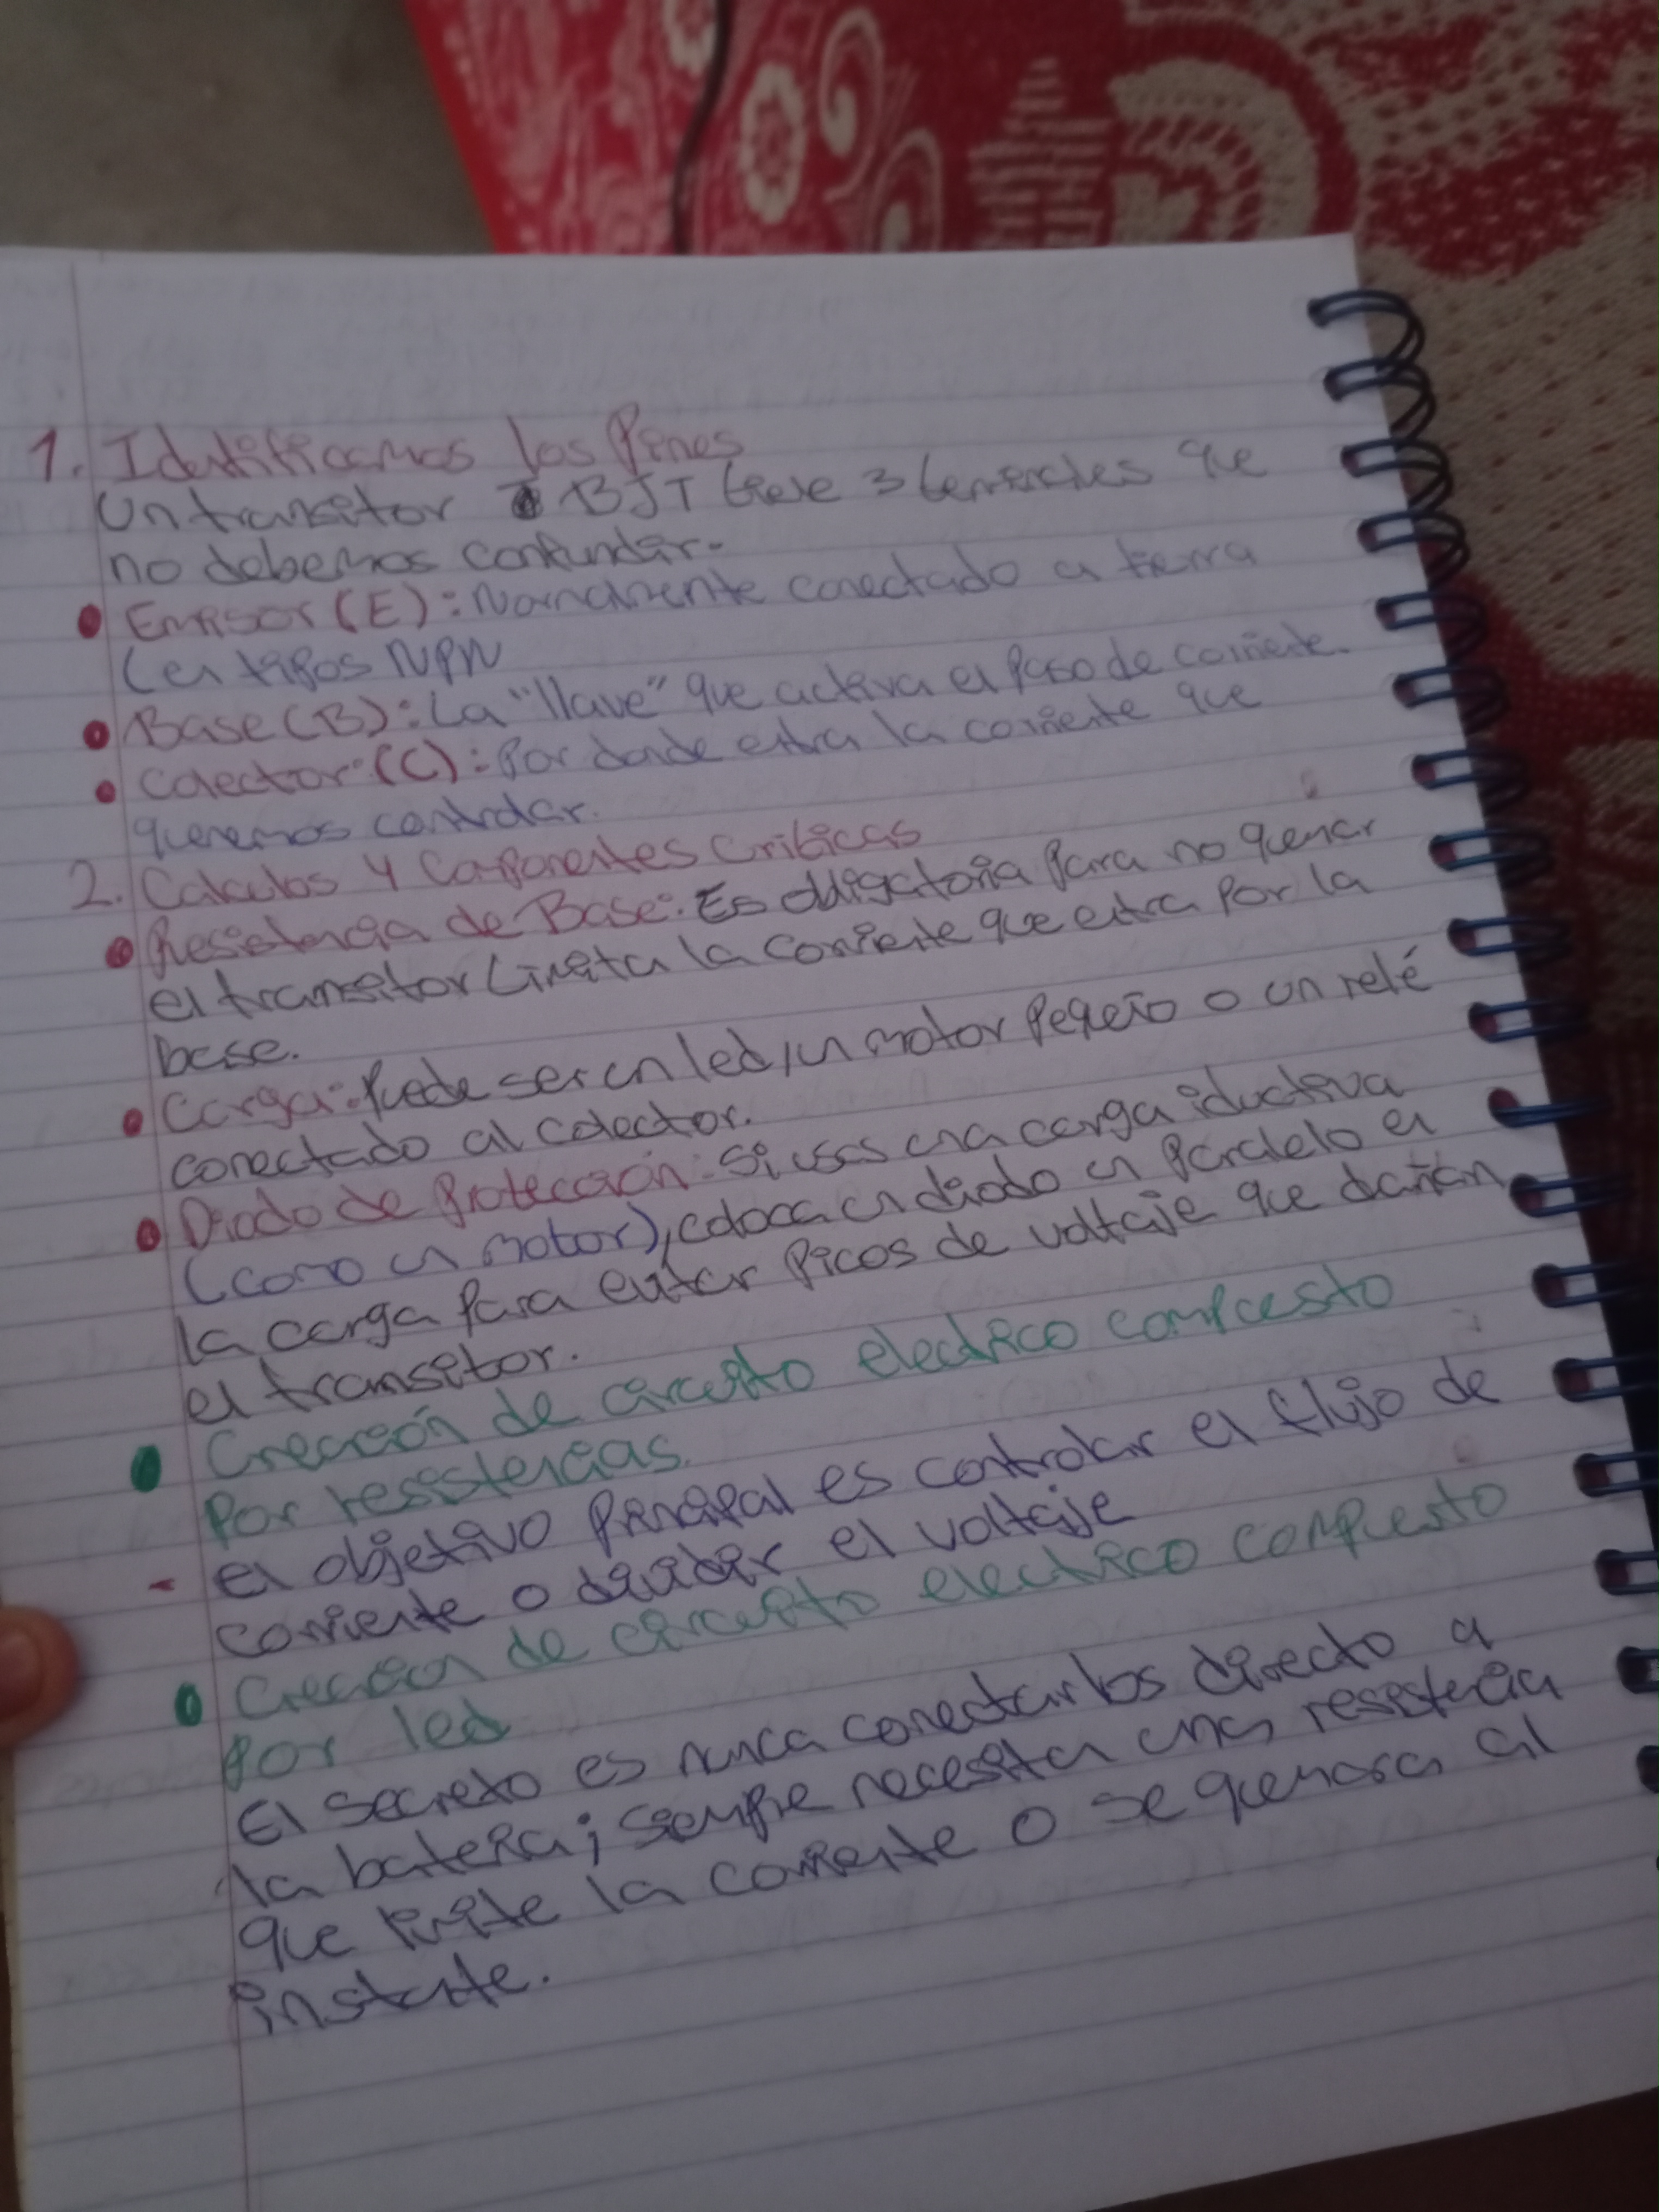 1. Identificamos los Pines
Un transitor BJT tiene 3 terminales que
no debemos confundir.
Emisor (E): Normalmente conectado a tierra
(en tipos NPN
Base (B): La "llave" que activa el paso de corriente.
Colector (C): Por donde entra la corriente que
queremos controlar.
2. Calculos y Componentes Criticas
Resistencia de Base: Es obligatoria para no quemar
el transitor Limita la corriente que entra por la
base.
Carga: Puede ser un led, un motor pequeño o un relé
conectado al colector.
Diodo de protección: Si usas una carga iductiva
(como un motor), coloca un diodo en paralelo a
la carga para evitar picos de voltaje que dañan
el transitor.
Creación de circuito electrico compuesto
Por resistencias.
- el objetivo principal es controlar el flujo de
corriente o dividir el voltaje
Creacion de circuito electrico compuesto
por led
El secreto es nunca conectarlos directo a
la bateria; siempre necesita una resistencia
que limite la corriente o se quemara al
instante.